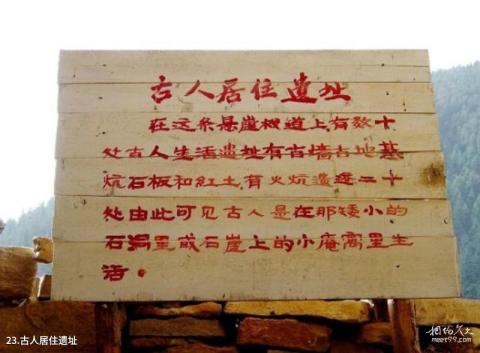 古人居住遗址
在这条悬崖栈道上有数十
处古人生活遗址有古墙古地基
炕石板和红土有火炕遗迹二十
处由此可见古人是在那矮小的
石洞里或石崖上的小庵窝里生
活。
23.古人居住遗址
meet99.com